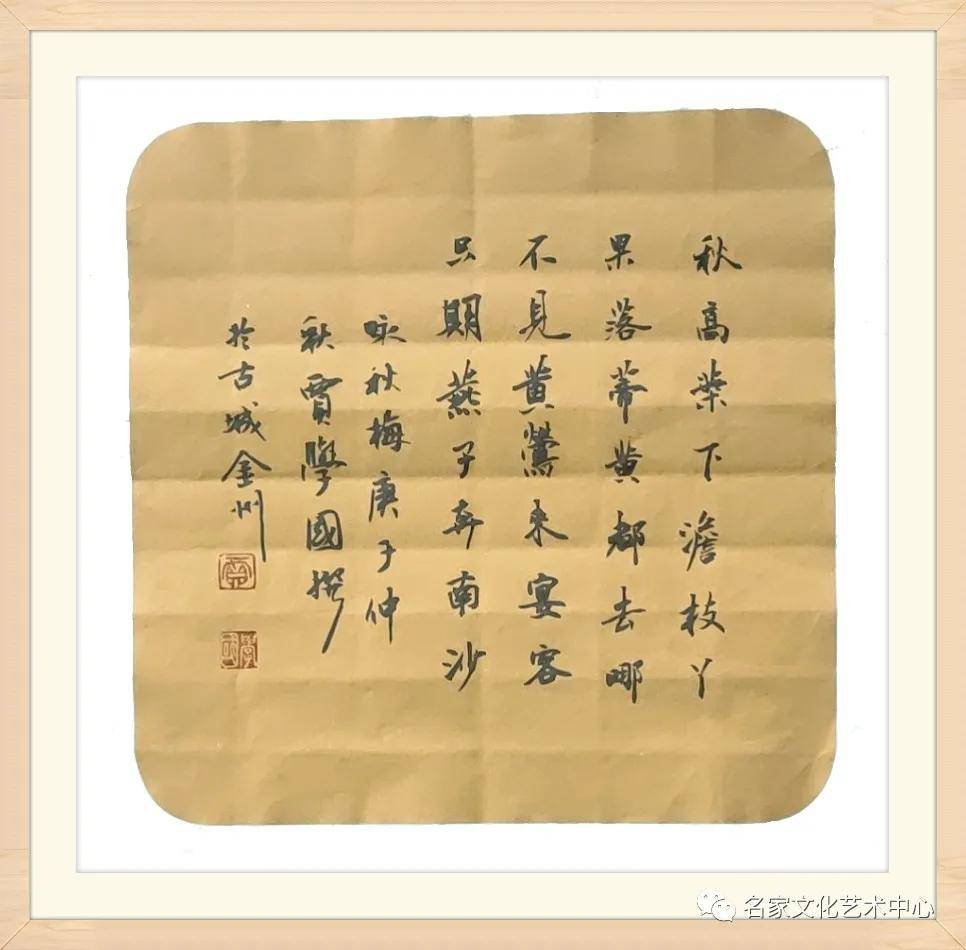 秋高葉下澹枝丫
果落蒂黄都去哪
不見黄鶯来宴客
只期燕子奔南沙
咏秋梅庚子仲
秋賈學國撰
於古城金州
賈
學國
名家文化艺术中心